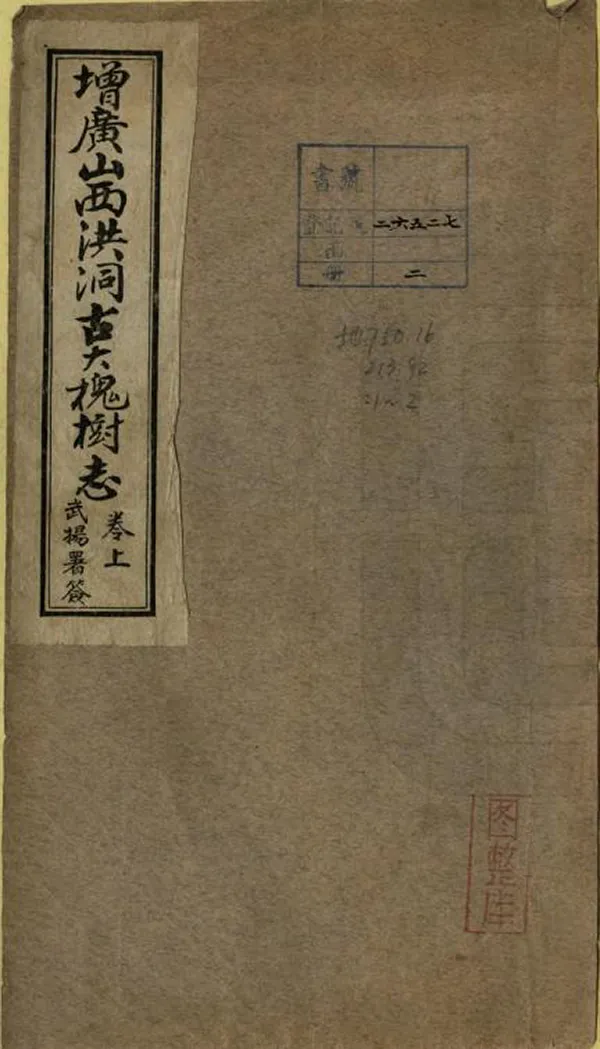 增廣山西洪洞古大槐樹志
卷上
武揚署簽
書號
登記 二六五二七
函
冊 二
地750.16
213.92
21~2
图整庫